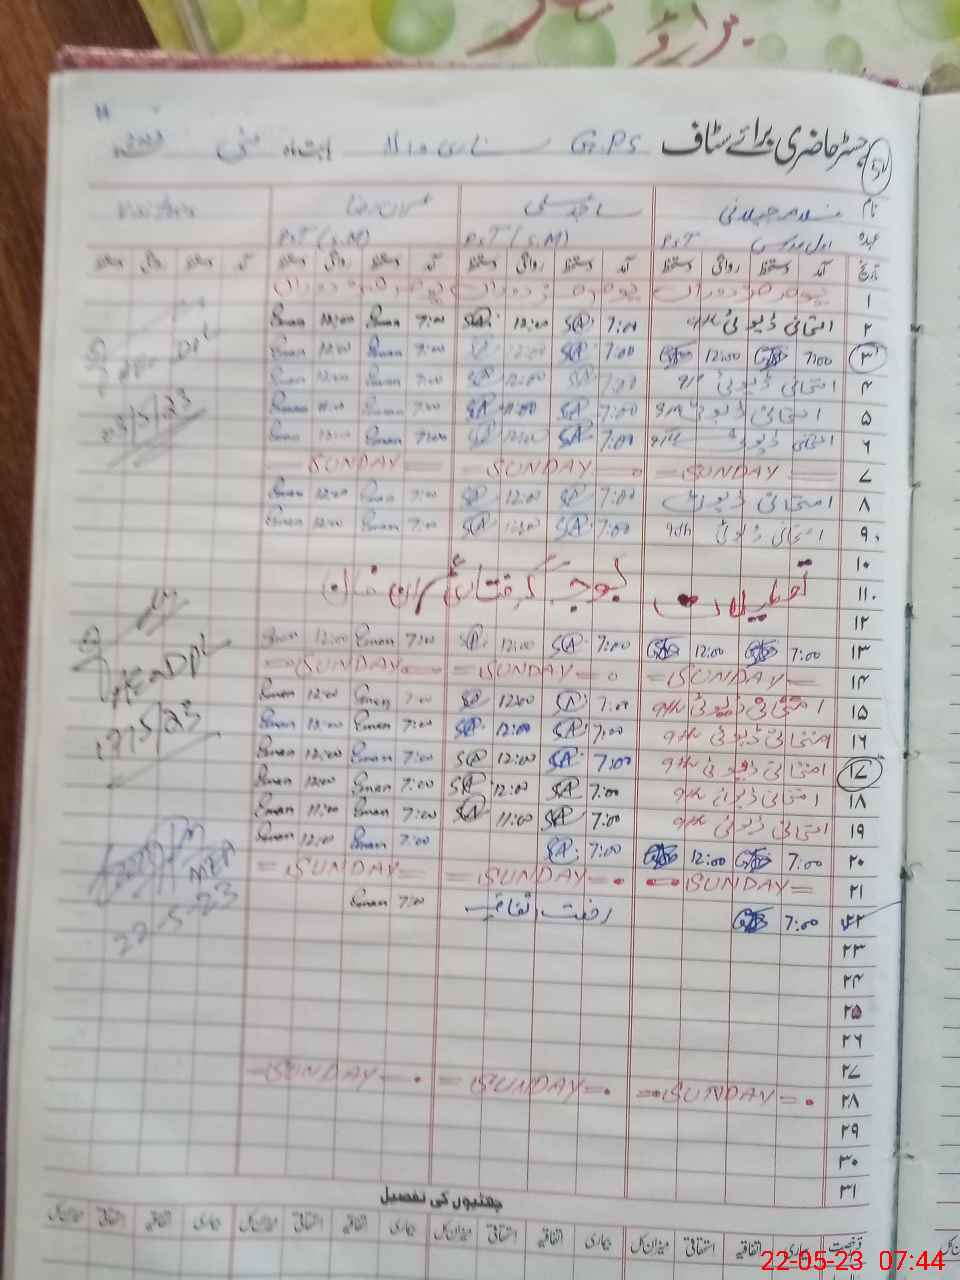 رجسٹر حاضری برائے سٹاف G.P.S بابت ماہ مئی
نام غلام جیلانی ساجد علی Visitors
عہدہ P.S.T P.S.T (S.M) P.S.T (S.M)
تاریخ آمد دستخط روانگی دستخط آمد دستخط روانگی دستخط آمد دستخط روانگی دستخط آمد دستخط روانگی دستخط
۱ یوم مزدوراں یوم مزدوراں یوم مزدوراں
۲ امتحانی ڈیوٹی 9th 7:00 SA 12:00 SA 7:00 Eman 12:00 Eman
۳ 7:00 12:00 7:00 SA 12:00 SA 7:00 Eman 12:00 Eman
۴ امتحانی ڈیوٹی 9th 7:00 SA 12:00 SA 7:00 Eman 12:00 Eman
۵ امتحانی ڈیوٹی 9th 7:00 SA SA 7:00 Eman Eman
۶ امتحانی ڈیوٹی 9th 7:00 SA 12:00 SA 7:00 Eman 12:00 Eman
۷ SUNDAY SUNDAY SUNDAY
۸ امتحانی ڈیوٹی 7:00 SA 12:00 SA 7:00 Eman 12:00 Eman
۹ امتحانی ڈیوٹی 9th 7:00 SA 12:00 SA 7:00 Eman 12:00 Eman
۱۰
۱۱ تعطیلات بوجہ گرفتاری عمران خان
۱۲
۱۳ 7:00 12:00 7:00 SA 12:00 SA 7:00 Eman 12:00 Eman
۱۴ SUNDAY SUNDAY SUNDAY
۱۵ امتحانی ڈیوٹی 9th 7:00 SA 12:00 SA 7:00 Eman 12:00 Eman
۱۶ امتحانی ڈیوٹی 9th 7:00 SA 12:00 SA 7:00 Eman 12:00 Eman
۱۷ امتحانی ڈیوٹی 9th 7:00 SA 12:00 SA 7:00 Eman 12:00 Eman
۱۸ امتحانی ڈیوٹی 9th 7:00 SA 12:00 SA 7:00 Eman 12:00 Eman
۱۹ امتحانی ڈیوٹی 9th 7:00 SA 11:00 SA 7:00 Eman 11:00 Eman
۲۰ 7:00 12:00 7:00 SA 7:00 Eman 12:00 Eman
۲۱ SUNDAY SUNDAY SUNDAY
۲۲ 7:00 رخصت اتفاقیہ 7:00 Eman
۲۳
۲۴
۲۵
۲۶
۲۷
۲۸ SUNDAY SUNDAY SUNDAY
۲۹
۳۰
۳۱
03/5/23
17/5/23
MEA
22-5-23
چھٹیوں کی تفصیل
رخصت بیماری اتفاقیہ استحقاقی میزان کل بیماری اتفاقیہ استحقاقی میزان کل بیماری اتفاقیہ استحقاقی میزان کل بیماری اتفاقیہ استحقاقی میزان کل
22-05-23 07:44